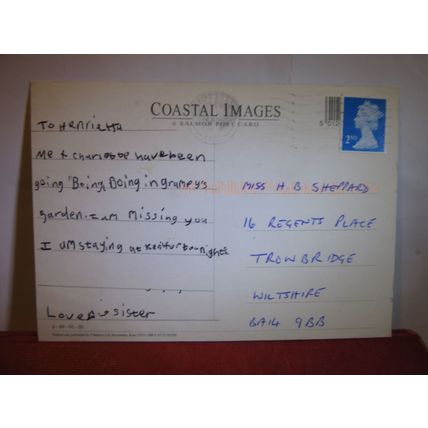 COASTAL IMAGES
A SALMON POST CARD
2ND
To Henrietta
Me & Charlotte have been
going Boing Boing in grampy's
garden. I am Missing you
I um staying at for nights
Love sister
MISS H B SHEPPARD
16 REGENTS PLACE
TROWBRIDGE
WILTSHIRE
BA14 9BB